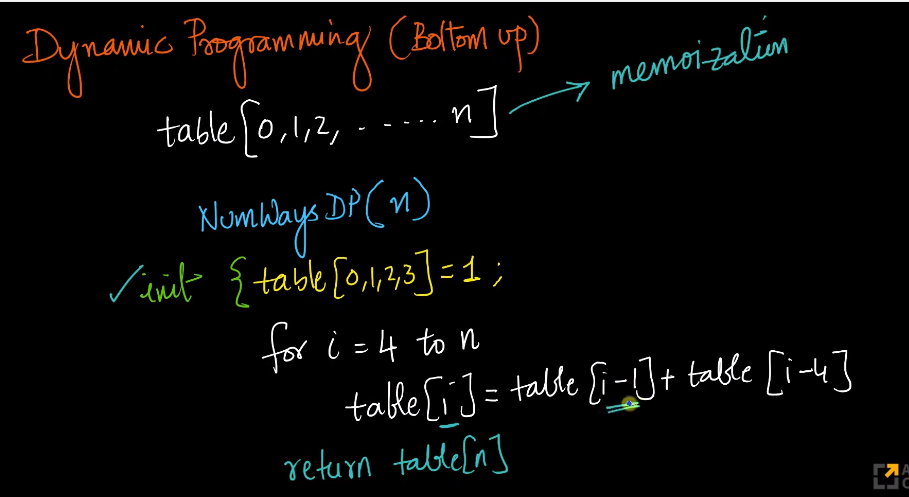 Dynamic Programming (Bottom up)
table[0,1,2, ------ n] → memoization
NumWaysDP(n)
✓init {table[0,1,2,3]=1;
for i = 4 to n
table[i] = table[i-1] + table[i-4]
return table[n]